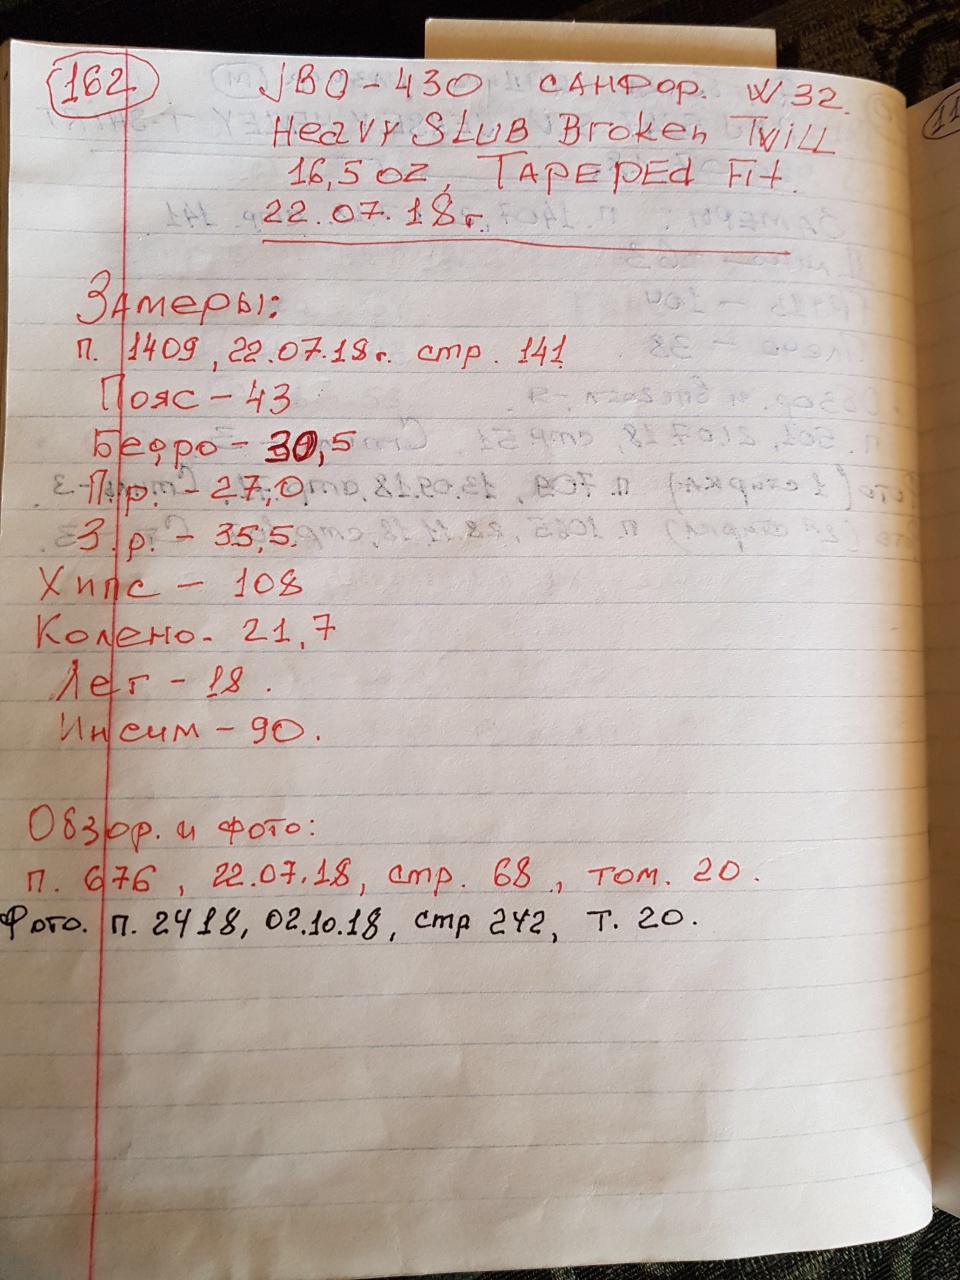 162 JBO-430 САНФОР. W32.
Heavy SLUB Broken TWILL
16,5 oz, TAPEPED FiT.
22.07.18г.
Замеры:
п. 1409, 22.07.18г. стр. 141
Пояс - 43
Бедро - 30,5
П.р. - 27,0
З.р. - 35,5.
Хипс - 108
Колено - 21,7
Лег - 18.
Инсим - 90.
Обзор. и фото:
п. 676, 22.07.18, стр. 68, том. 20.
Фото. п. 2418, 02.10.18, стр 242, Т. 20.